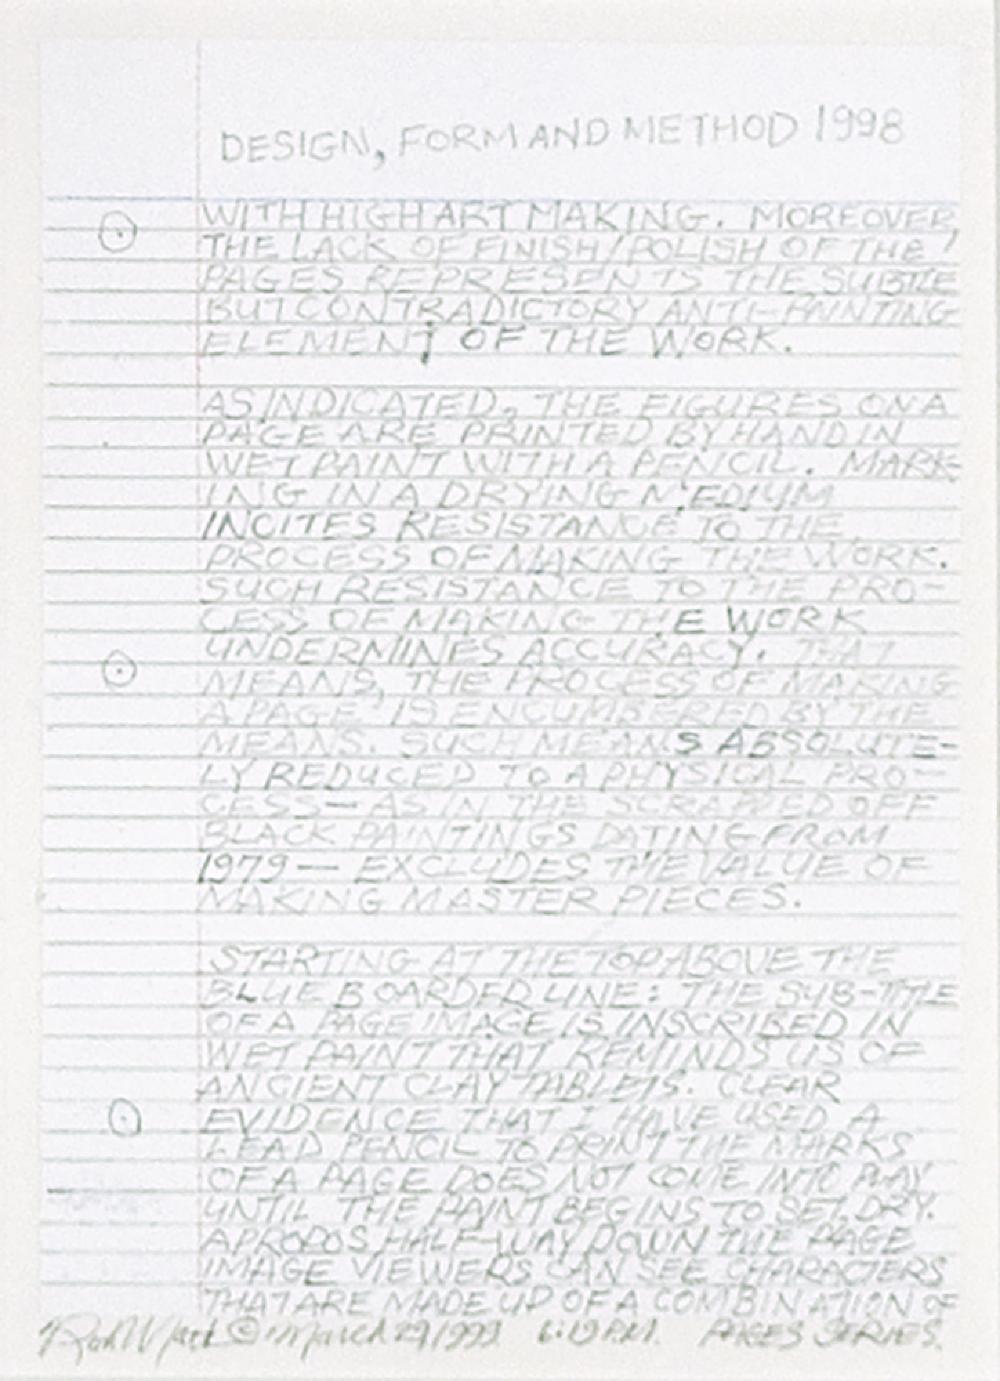 DESIGN, FORM AND METHOD 1998
WITH HIGH ART MAKING. MOREOVER,
THE LACK OF FINISH/POLISH OF THE
PAGES REPRESENTS THE SUBTLE
BUT CONTRADICTORY ANTI-PAINTING
ELEMENT OF THE WORK.
AS INDICATED, THE FIGURES ON A
PAGE ARE PRINTED BY HAND IN
WET PAINT WITH A PENCIL. MARK-
ING IN A DRYING MEDIUM
INCITES RESISTANCE TO THE
PROCESS OF MAKING THE WORK.
SUCH RESISTANCE TO THE PRO-
CESS OF MAKING THE WORK
UNDERMINES ACCURACY. THAT
MEANS, THE PROCESS OF MAKING
A PAGE IS ENCUMBERED BY THE
MEANS. SUCH MEANS ABSOLUTE-
LY REDUCED TO A PHYSICAL PRO-
CESS—AS IN THE SCRAPED OFF
BLACK PAINTINGS DATING FROM
1979— EXCLUDES THE VALUE OF
MAKING MASTER PIECES.
STARTING AT THE TOP ABOVE THE
BLUE BOARDED LINE: THE SUB-TITLE
OF A PAGE IMAGE IS INSCRIBED IN
WET PAINT THAT REMINDS US OF
ANCIENT CLAY TABLETS. CLEAR
EVIDENCE THAT I HAVE USED A
LEAD PENCIL TO PRINT THE MARKS
OF A PAGE DOES NOT COME INTO PLAY
UNTIL THE PAINT BEGINS TO SET, DRY.
APROPOS, HALF-WAY DOWN THE PAGE
IMAGE VIEWERS CAN SEE CHARACTERS
THAT ARE MADE UP OF A COMBINATION OF
© March 29, 1999. 6:19 P.M. PAGES SERIES.